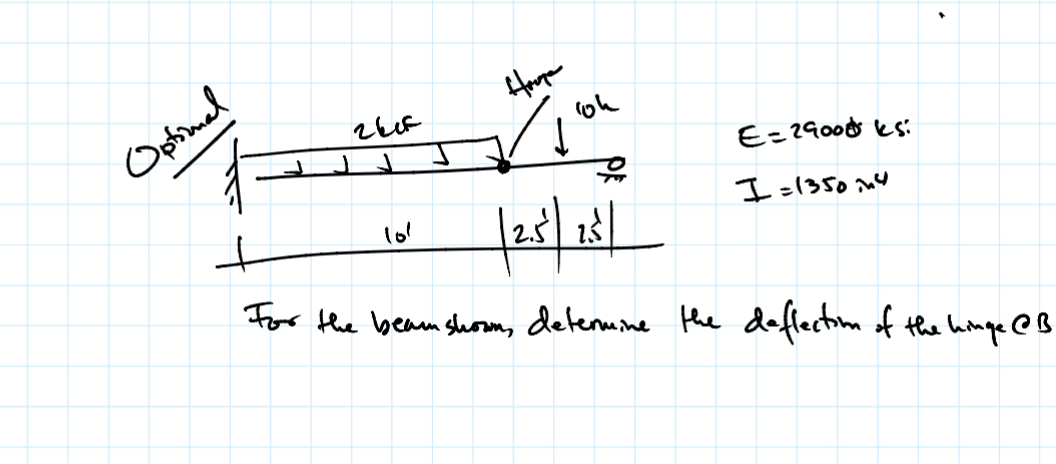 Optional
Hinge
2 kLF
10k
E = 29000 ksi
I = 1350 in4
10' 2.5' 2.5'
For the beam shown, determine the deflection of the hinge @ B